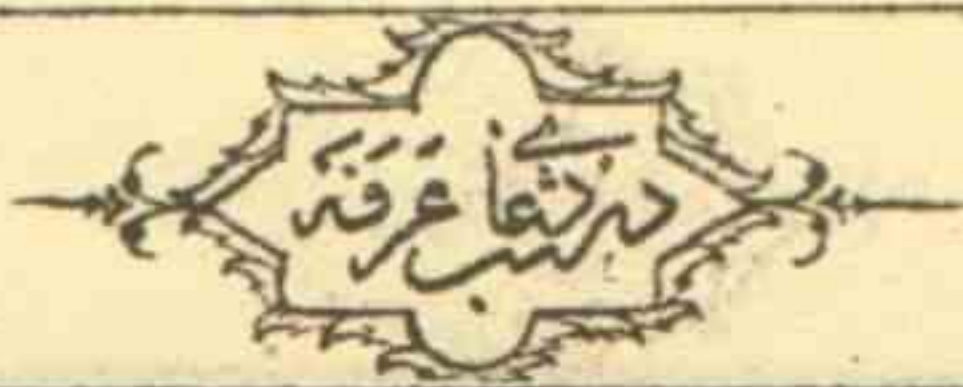 در دعای شب عرفه